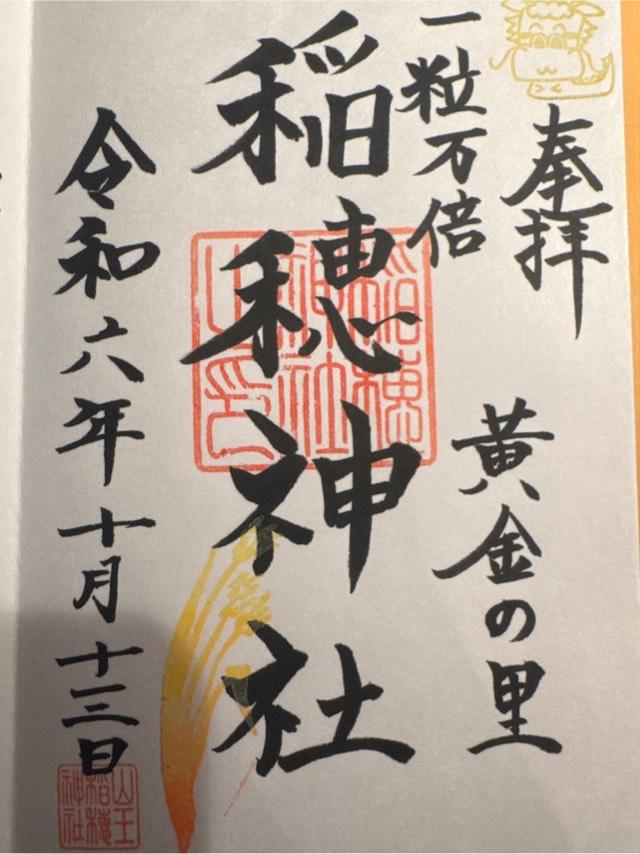 奉拝
黄金の里
一粒万倍
稲穂神社
稲穂
神社
之印
令和六年十月十三日
山王
稲穂
神社